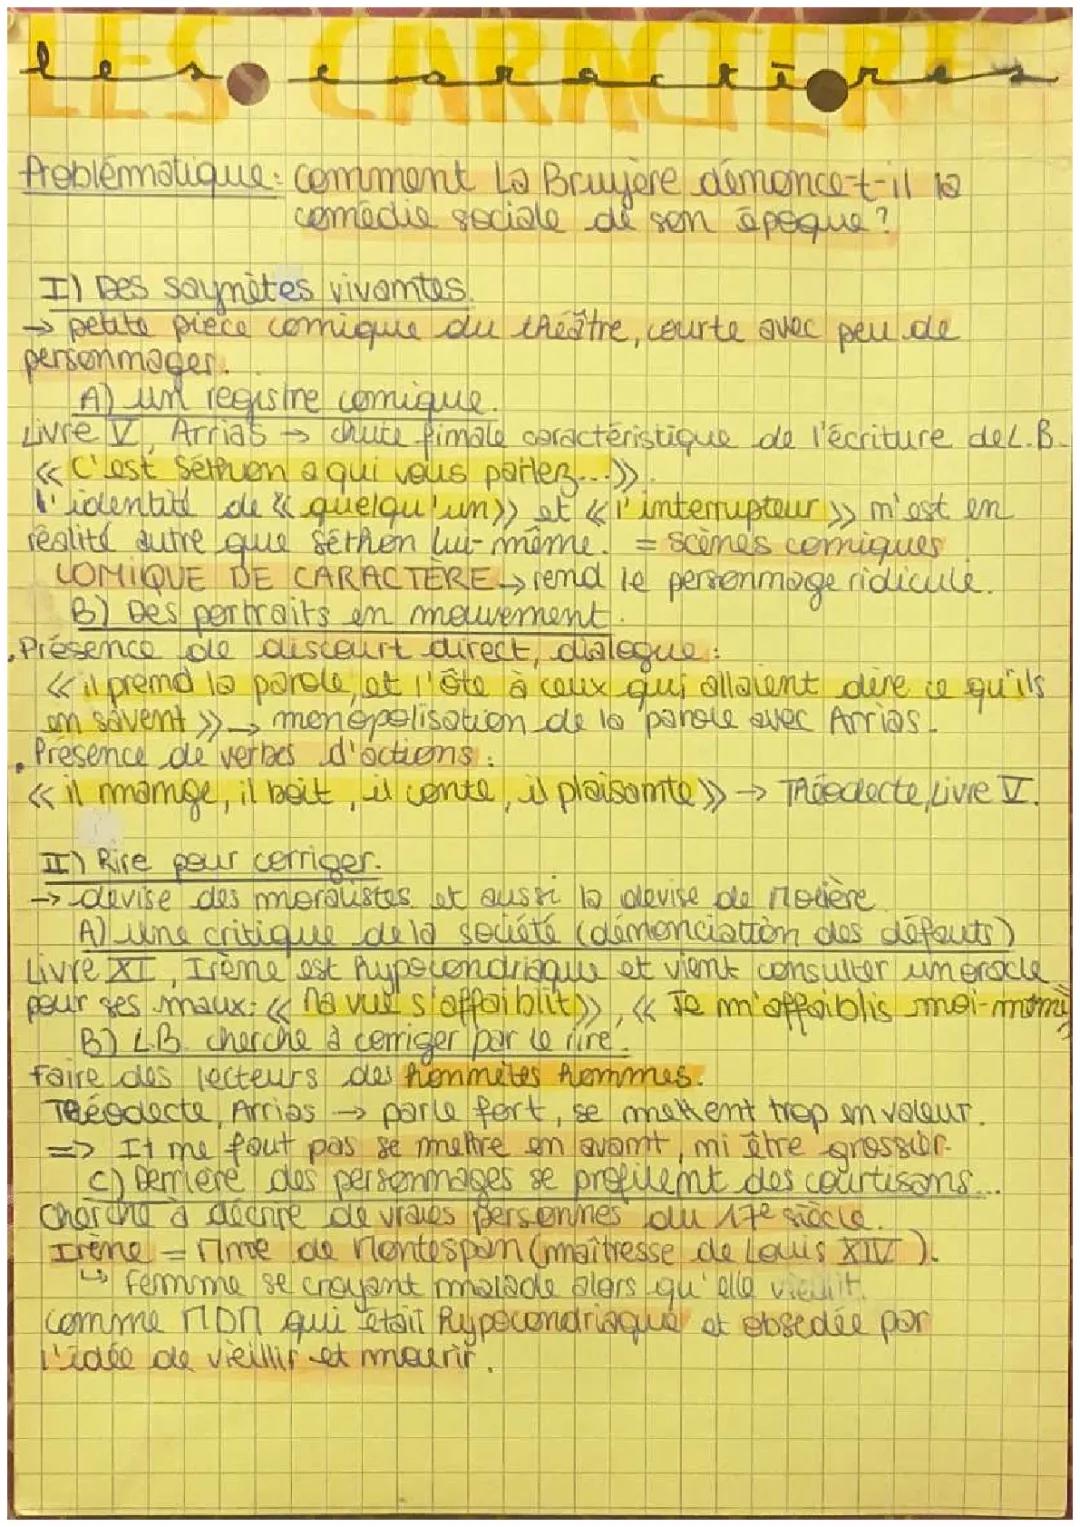 LES CARACTERES
les caractères
Problématique: comment La Bruyère dénonce-t-il la
comédie sociale de son époque?
I) Des saynètes vivantes.
→ petite pièce comique du théâtre, courte avec peu de
personnages.
A) un registre comique.
Livre V, Arrias → chute finale caractéristique de l'écriture de L.B.
« C'est Séthon a qui vous parlez...».
l'identité de « quelqu'un» et « l'interrupteur » n'est en
réalité autre que Séthon lui-même. = scènes comiques
COMIQUE DE CARACTÈRE → rend le personnage ridicule.
B) Des portraits en mouvement.
.Présence de discourt direct, dialogue:
« il prend la parole, et l'ôte à ceux qui allaient dire ce qu'ils
en savent » → monopolisation de la parole avec Arrias.
. Présence de verbes d'actions:
« il mange, il boit, il conte, il plaisante» → Théodecte, Livre V.
II) Rire pour corriger.
→ devise des moralistes et aussi la devise de Molière
A) Une critique de la société (dénonciation des défauts)
Livre XI, Irène est hypocondriaque et vient consulter un oracle
pour ses maux: « Ma vue s'affaiblit», « Je m'affaiblis moi-même
B) L.B. cherche à corriger par le rire.
Faire des lecteurs des honnêtes hommes.
Théodecte, Arrias → parle fort, se mettent trop en valeur.
=> It ne faut pas se mettre en avant, ni être grossier.
C) Derrière des personnages se profilent des courtisans...
Cherche à décrire de vraies personnes du 17e siècle.
Irène = Mme de Montespan (maîtresse de Louis XIV).
↳ Femme se croyant malade alors qu'elle vieillit.
comme MDM qui était hypocondriaque et obsedée par
l'idée de vieillir et mourir.